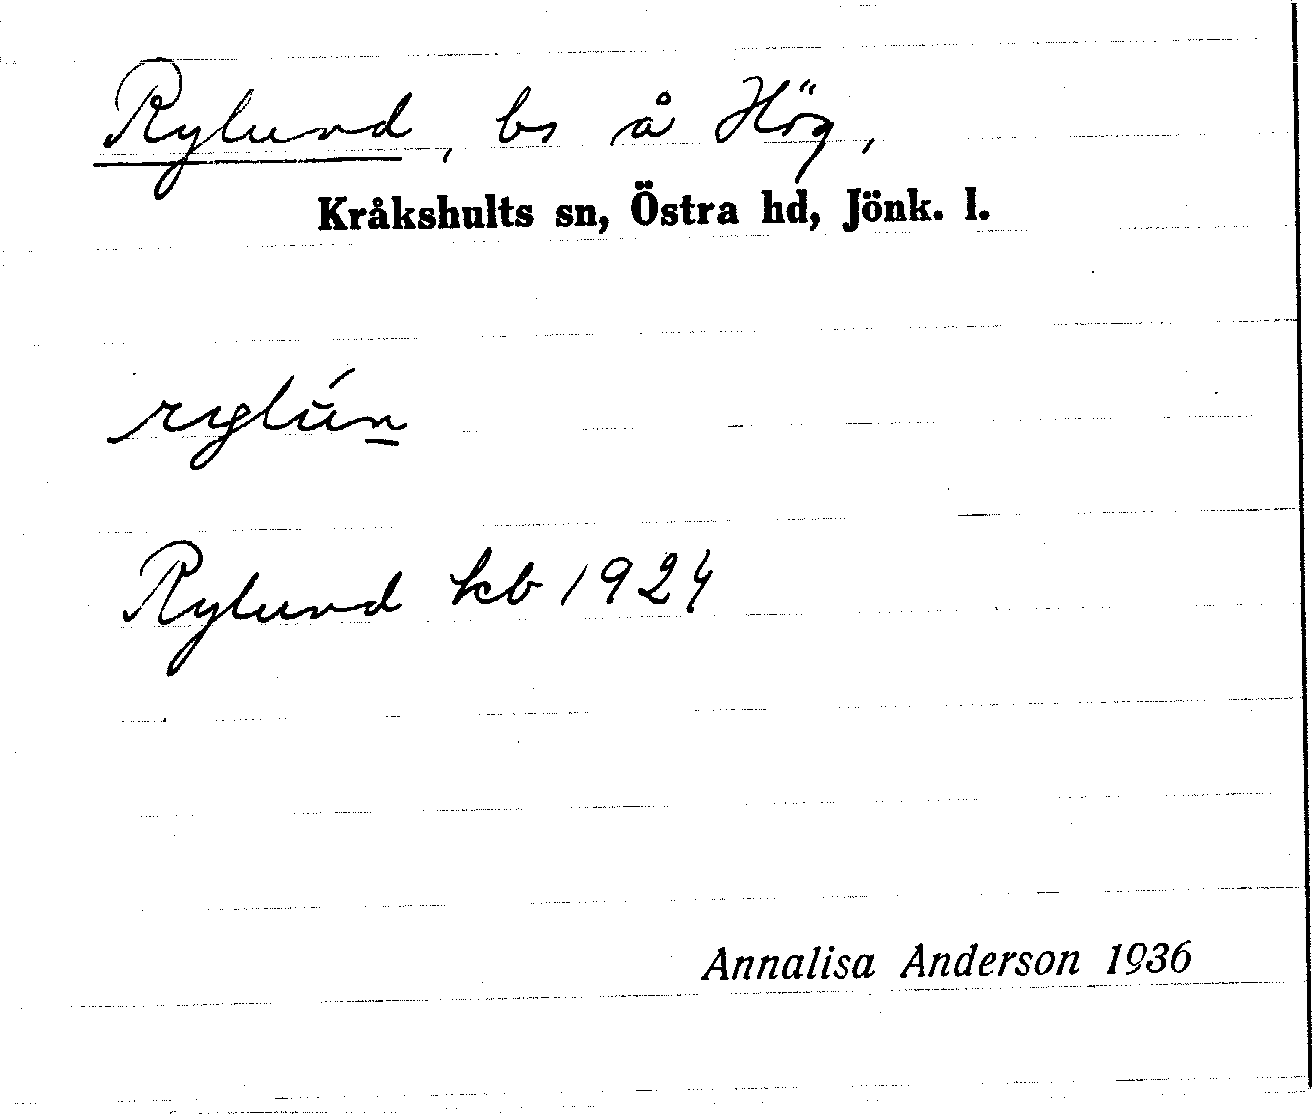 Rylund, bs å Hög,
Kråkshults sn, Östra hd, Jönk. l.
rylún
Rylund kb 1924
Annalisa Anderson 1936